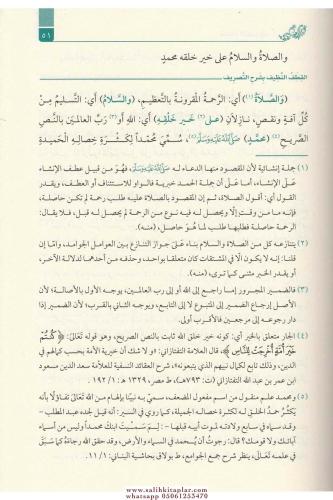 ٥١
والصلاةُ والسلامُ على خير خلقه محمدٍ
القطف النظيف بشرح التصريف
(وَالصَّلَاةُ)(١) أي: الرَّحمةُ المَقرونةُ بالتَّعظيمِ، (والسَّلامُ) أي: التَّسليمُ مِنْ
كُلِّ آفةٍ ونقصٍ، نازِلَانِ (على(٢) خَيرِ خَلْقِهِ) أي: اللهِ أو(٣) رَبِّ العالمينَ بالنَّصِ
الصَّريحِ(٤) (محمَّدٍ) ﷺ(٥)، سُمِّيَ مُحمَّداً لِكَثرَةِ خِصالِهِ الحَمِيدةِ
(١) جملة إنشائية لأن المقصود منها الدعاء له ﷺ، فهُوَ مِن قبيل عطف الإنشاء
على الإنشاء، أما على أن جملة الحمد خبرية فالواو للاستئناف أو العطف، وبقدر
القول أي: أقول الصلاة، ثم إن المقصود بالصلاة عليه طلب رحمة لم تكن حاصلة،
فإنه ما من وقت إلَّا ويحصل له فيه نوع من الرحمة لم يحصل له قبل، فلا يقال:
الرحمة حاصلة فطلبها طلب لما هُوَ حاصل، (منه).
(٢) يتنازعه كل من الصلاة والسلام بناء على جواز التنازع بين العوامل الجوامد، وإمّا إن
قلنا: إنه لا يكون إلَّا في المشتقات كان متعلقا بواحد، وحذف من أحدهما لدلالة الآخر،
أو يقدر الخبر مثنى كما ترى (منه).
(٣) فالضمير المجرور إما راجع إلى الله أو إلى رب العالمين، يوجه الأول بالأصالة؛ لأن
الأصل إرجاع الضمير إلى المتبوع لا إلى التابع، ويوجه الثاني بالقرب؛ لأن الضمير إذا
دار رجوعه إلى مرجعين فالأقرب أولى.
(٤) الجار متعلق بالخير أي: كونه خير خلق الله ثابت بالنص الصريح، وهو قوله تَعَالَى: ﴿كُنتُمْ
خَيْرَ أُمَّةٍ أُخْرِجَتْ لِلنَّاسِ﴾، قال العلامة التفتازاني: «ولا شك أن خيرية الأمة بحسب كمالهم في
الدين، وذلك تابع لكمال نبيهم الذي يتبعونه»، شرح العقائد النسفية للعلامة سعد الدين مسعود
ابن عمر بن عبد الله التفتازاني (ت: ٧٩٣هـ)، ط مصر، ١٣٢٩ هـ: ١٩٢/١.
(٥) ومحمد علم منقول من اسم مفعول المضعف، سمي به نبينا بإلهام من الله تعالى تفاؤلًا بأنه
يكثر حمدُ الخلق له لكثرة خصاله الجميلة، كما روي في السير: أنه قيل لجده عبد المطلب –
وقد سماه في سابع ولادته لموت أبيه قبلها –: لِمَ سَمَّيتَ ابنك محمداً وليس من أسماء
آبائك ولا قومك؟ قال: رجوتُ أن يُحمد في السماء والأرض، وقد حقق الله رجاءهُ كما سَبَقَ
في علمه تَعَالَى، ينظر شرح جمع الجوامع، ط بولاق بحاشية البناني: ١١/١.
www.salihkitaplar.com
whatsapp 05061253470